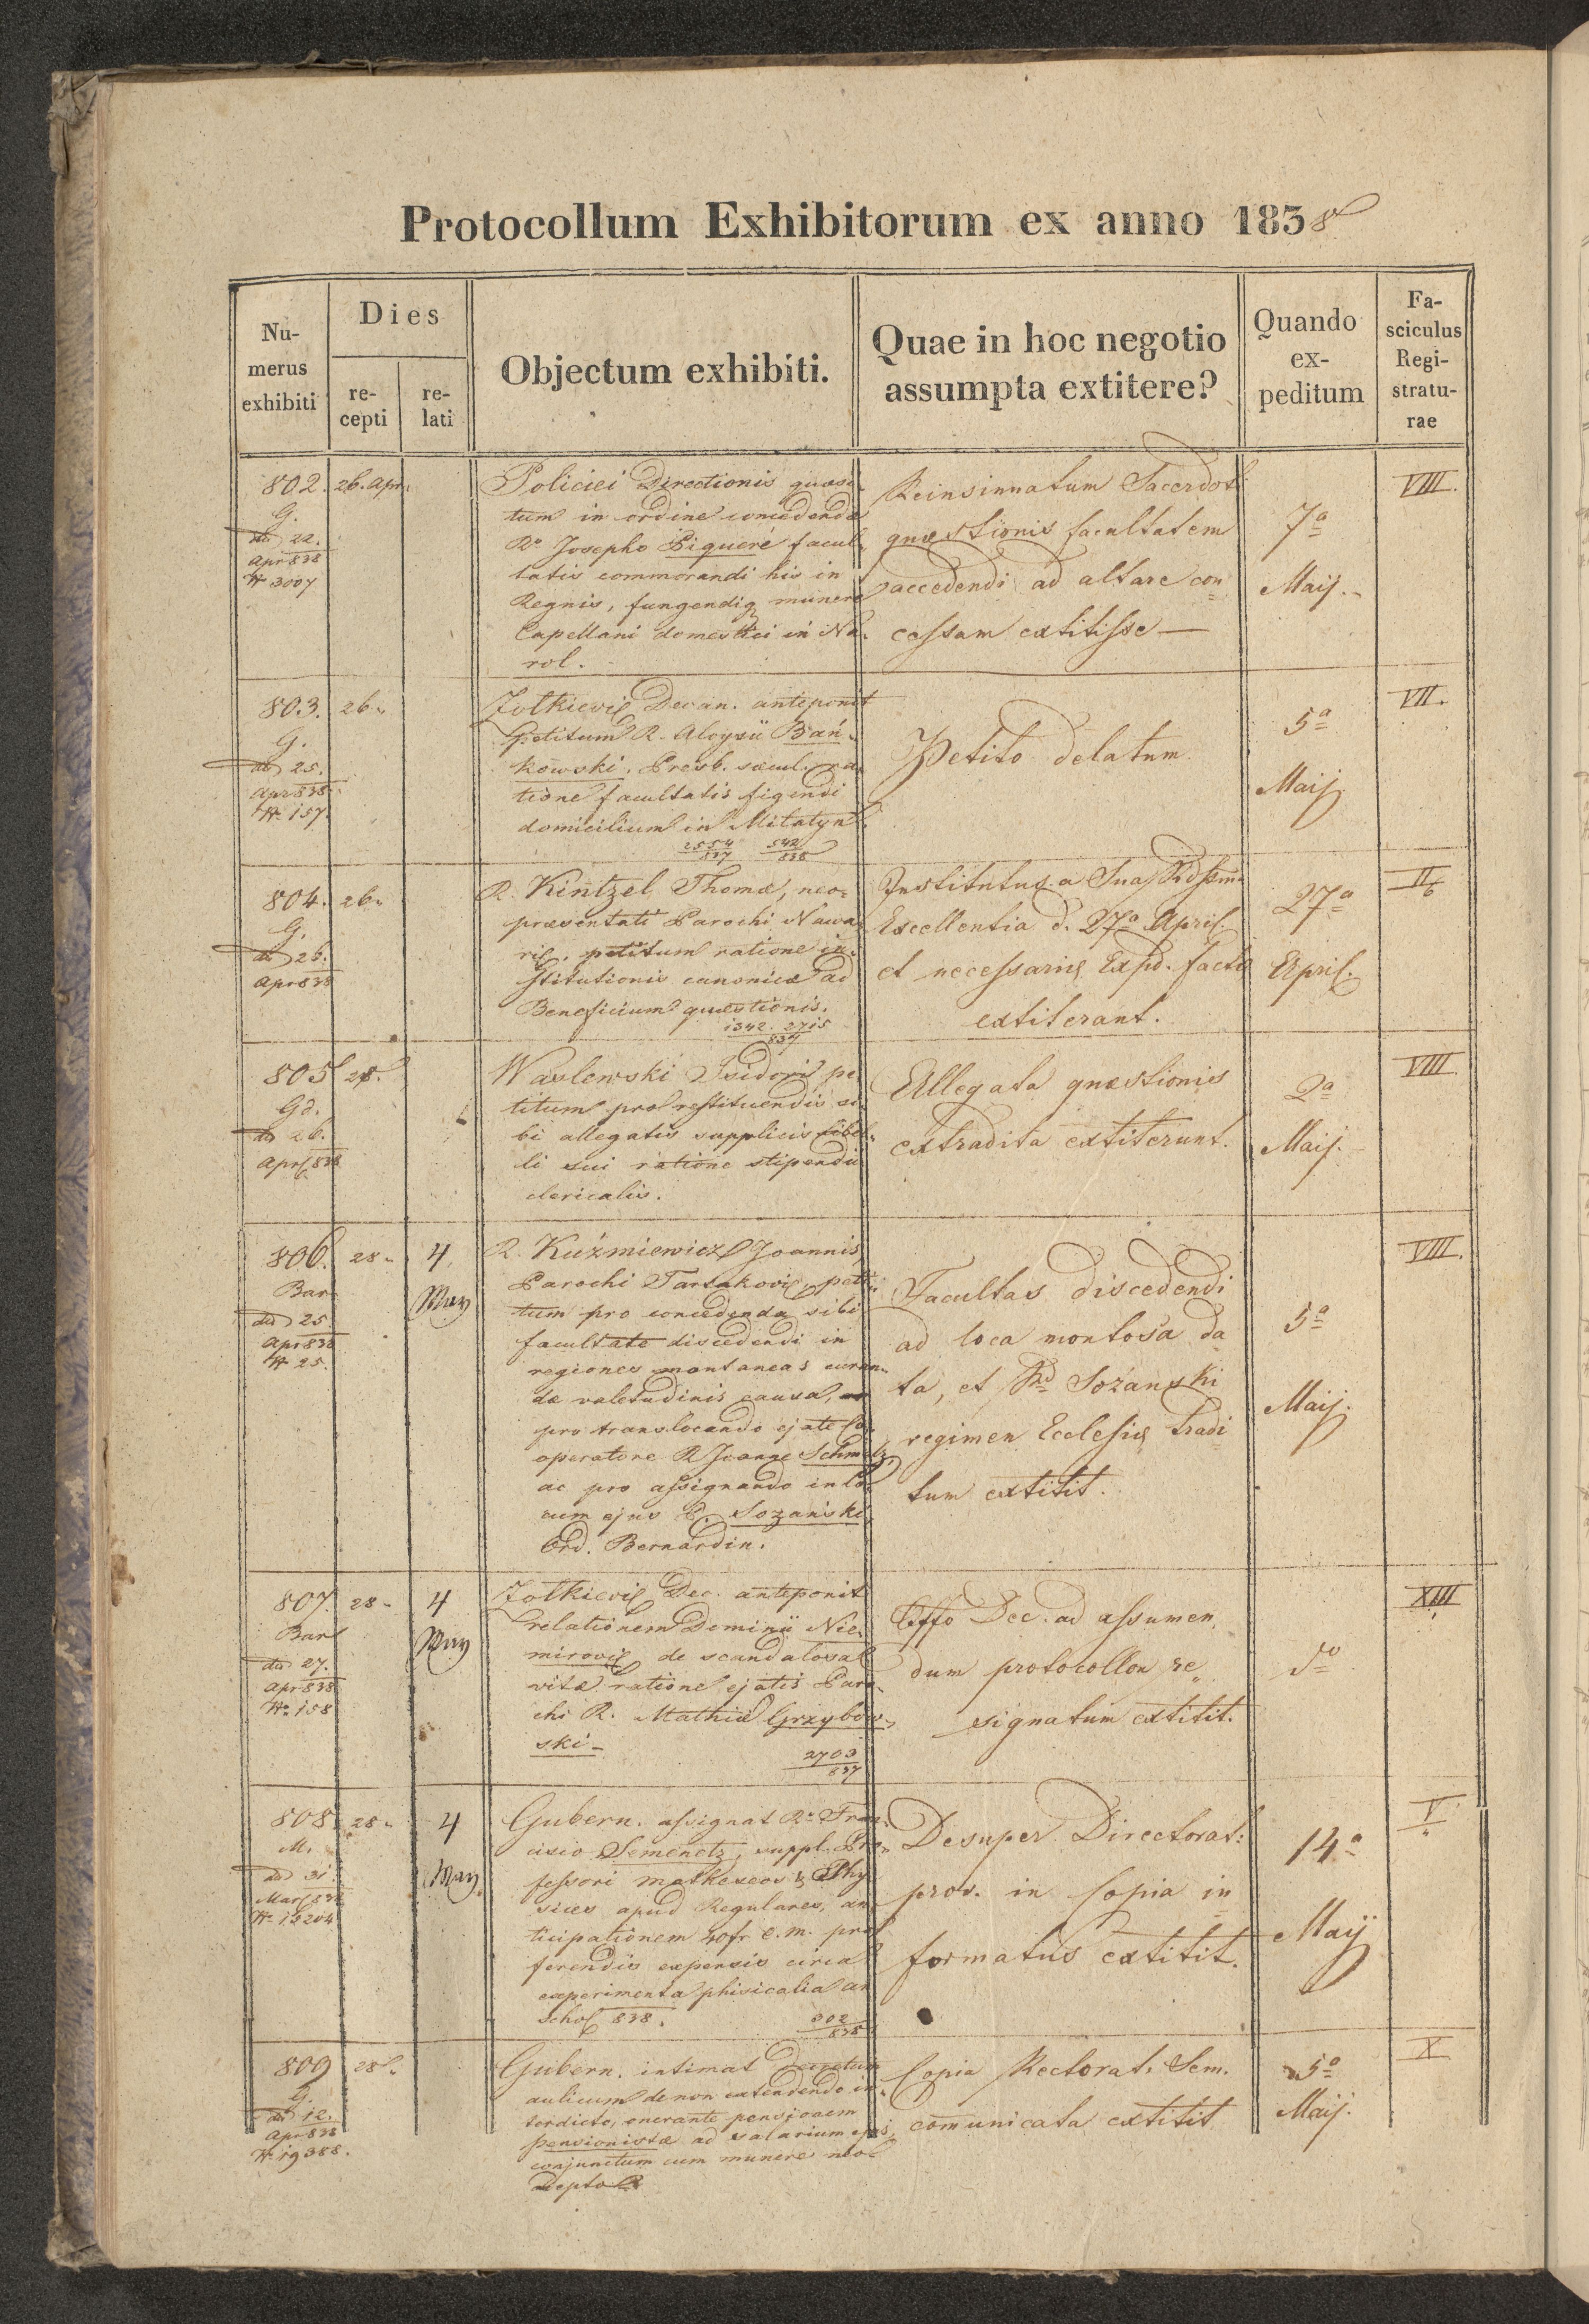 Protocollum Exhibitorum ex anno 1838
Numerus exhibiti
Dies
recepti
relati
Objectum exhibiti.
Quae in hoc negotio assumpta extitere?
Quando expeditum
Fasciculus Registraturae
802.
G.
dd 22.
Apr 838
N 3007
26. Apr.
Policiei Directionis quaesi-
tum in ordine concedendae
Ro Josepho Piquere facul-
tatis commorandi his in
Regnis, fungendiq munere
Capellani domestici in Na-
rol.
Reinsinuatum Sacerdoti
quaestionis facultatem
accedendi ad altare con
cessam extitisse —
7a
Maij.
VIII.
803.
G.
dd 25.
Apr 838
N. 157.
26.
Zolkievi Decan. anteponit
petitum R. Aloysii Bań-
kowski, Presb. saecul. ra-
tione facultatis figendi
domicilium in Milatyn.
2554/837 542/838
Petito delatum.
5a
Maij
VII.
804.
G.
dd 26.
Apr 838
26.
R. Kintzel Thomae, neo-
praesentati Parochi Nawa-
rie, petitum ratione in-
stitutionis canonicae ad
Beneficium quaestionis.
1342. 2715
837
Institutus a Sua Rdssima
Excellentia d. 27a April.
et necessariae Expd. factae
extiterant.
27a
April.
II/6
805
Gd.
dd 26.
Apr 838
28.
Waslewski Isidori pe-
titum pro restituendis si-
bi allegatis supplicis libel-
li sui ratione stipendii
clericalis.
Allegata quaestionis
extradita extiterunt.
2a
Maij.
VIII.
806.
Bar
dd 25
Apr 838
N 25.
28.
4.
May
R. Kuźmiewicz Joannis,
Parochi Tartakovi, peti-
tum pro concedenda sibi
facultate discedendi in
regiones montaneas curan-
dae valetudinis causa,
pro translocando ejate Co-
operatore R Joanne Schmelz,
ac pro assignando in lo-
cum ejus P. Sozański
Ord. Bernardin.
Facultas discedendi
ad loca montosa da
ta, et Rd Sozanski
regimen Ecclesiae tradi
tum extitit.
5a
Maij.
VIII.
807.
Bar
dd 27.
Apr 838
N. 158
28.
4
May
Zolkievi Dec. anteponit
relationem Dominii Nie-
mirovi de scandalosa
vitae ratione ejatis Paro-
chi R. Mathiae Grzybow-
ski-
2703
837
Offo Dec. ad assumen
dum protocollon re
signatum extitit.
do
XIII
808.
M.
dd 31.
Mart 838
N. 15204
28.
4
May.
Gubern. assignat Ro Fran-
cisco Semenetz, suppl. Pro-
fessori matheseos & Phy-
sices apud Regulares, an-
ticipationem 40fr c.m. pro
ferendis expensis circa
experimenta phisicalia an
schol 838.
302
838
Desuper Directorat:
prov. in Copia in
formatus extitit.
14a
Maij
V.
809
G.
dd 12.
Apr 838
N. 19388.
28.
Gubern. intimat Decretum
aulicum de non extendendo in-
terdicto, onerante pensionem
pensionistae ad salarium ejus,
conjunctum cum munere neo
adepto.
Copia Rectorat. Sem.
comunicata extitit
5a
Maij.
X